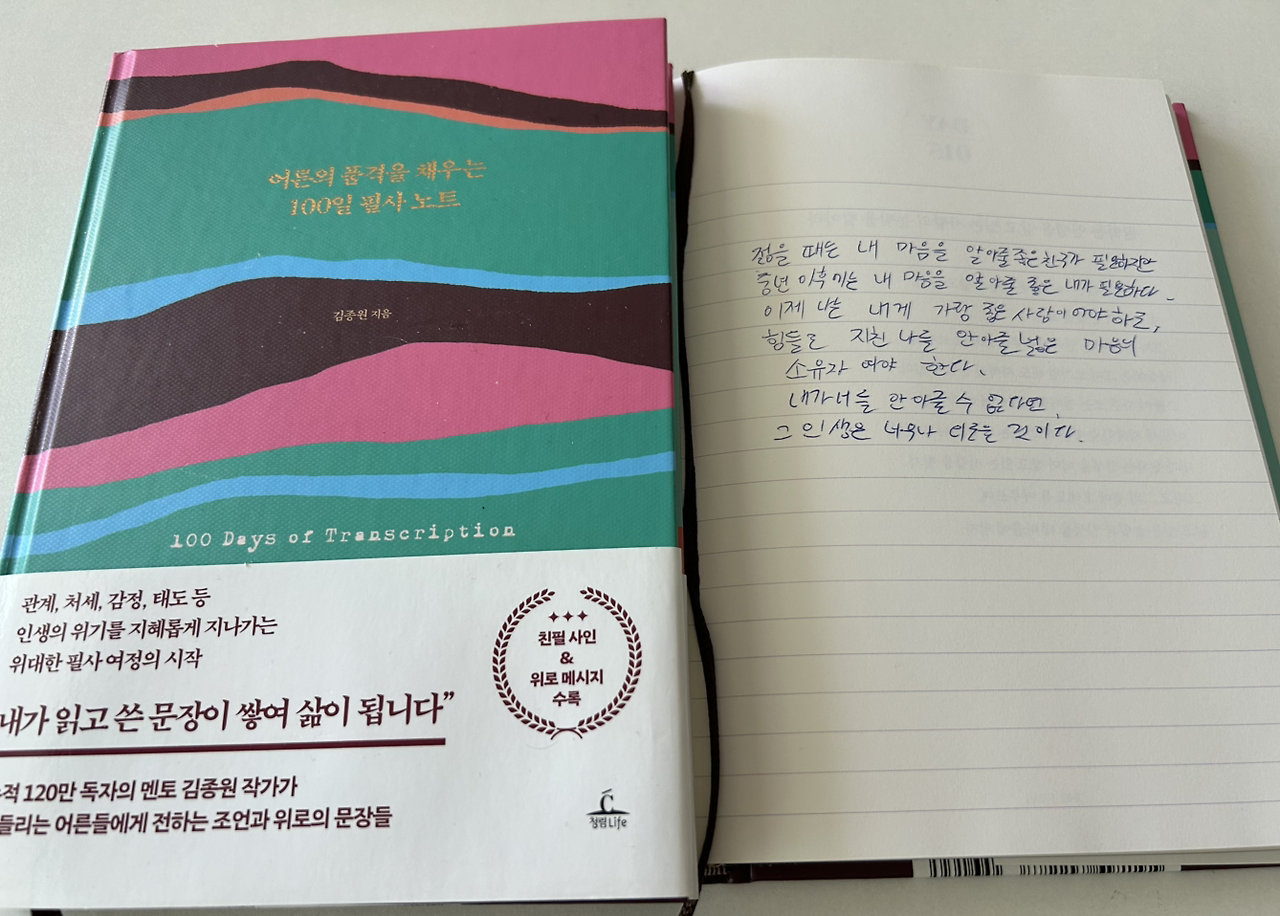 어른의 품격을 채우는
100일 필사 노트
김종원 지음
100 Days of Transcription
관계, 처세, 감정, 태도 등
인생의 위기를 지혜롭게 지나가는
위대한 필사 여정의 시작
내가 읽고 쓴 문장이 쌓여 삶이 됩니다”
적 120만 독자의 멘토 김종원 작가가
들리는 어른들에게 전하는 조언과 위로의 문장들
친필 사인
&
위로 메시지
수록
청림Life
DAY
015
젊을 때는 내 마음을 알아줄 좋은 친구가 필요하지만
중년 이후에는 내 마음을 알아줄 좋은 내가 필요하다.
이제 나는 내게 가장 좋은 사람이어야 하고,
힘들고 지친 나를 안아줄 넓은 마음의
소유자여야 한다.
내가 너를 안아줄 수 없다면,
그 인생은 너무나 외로울 것이다.